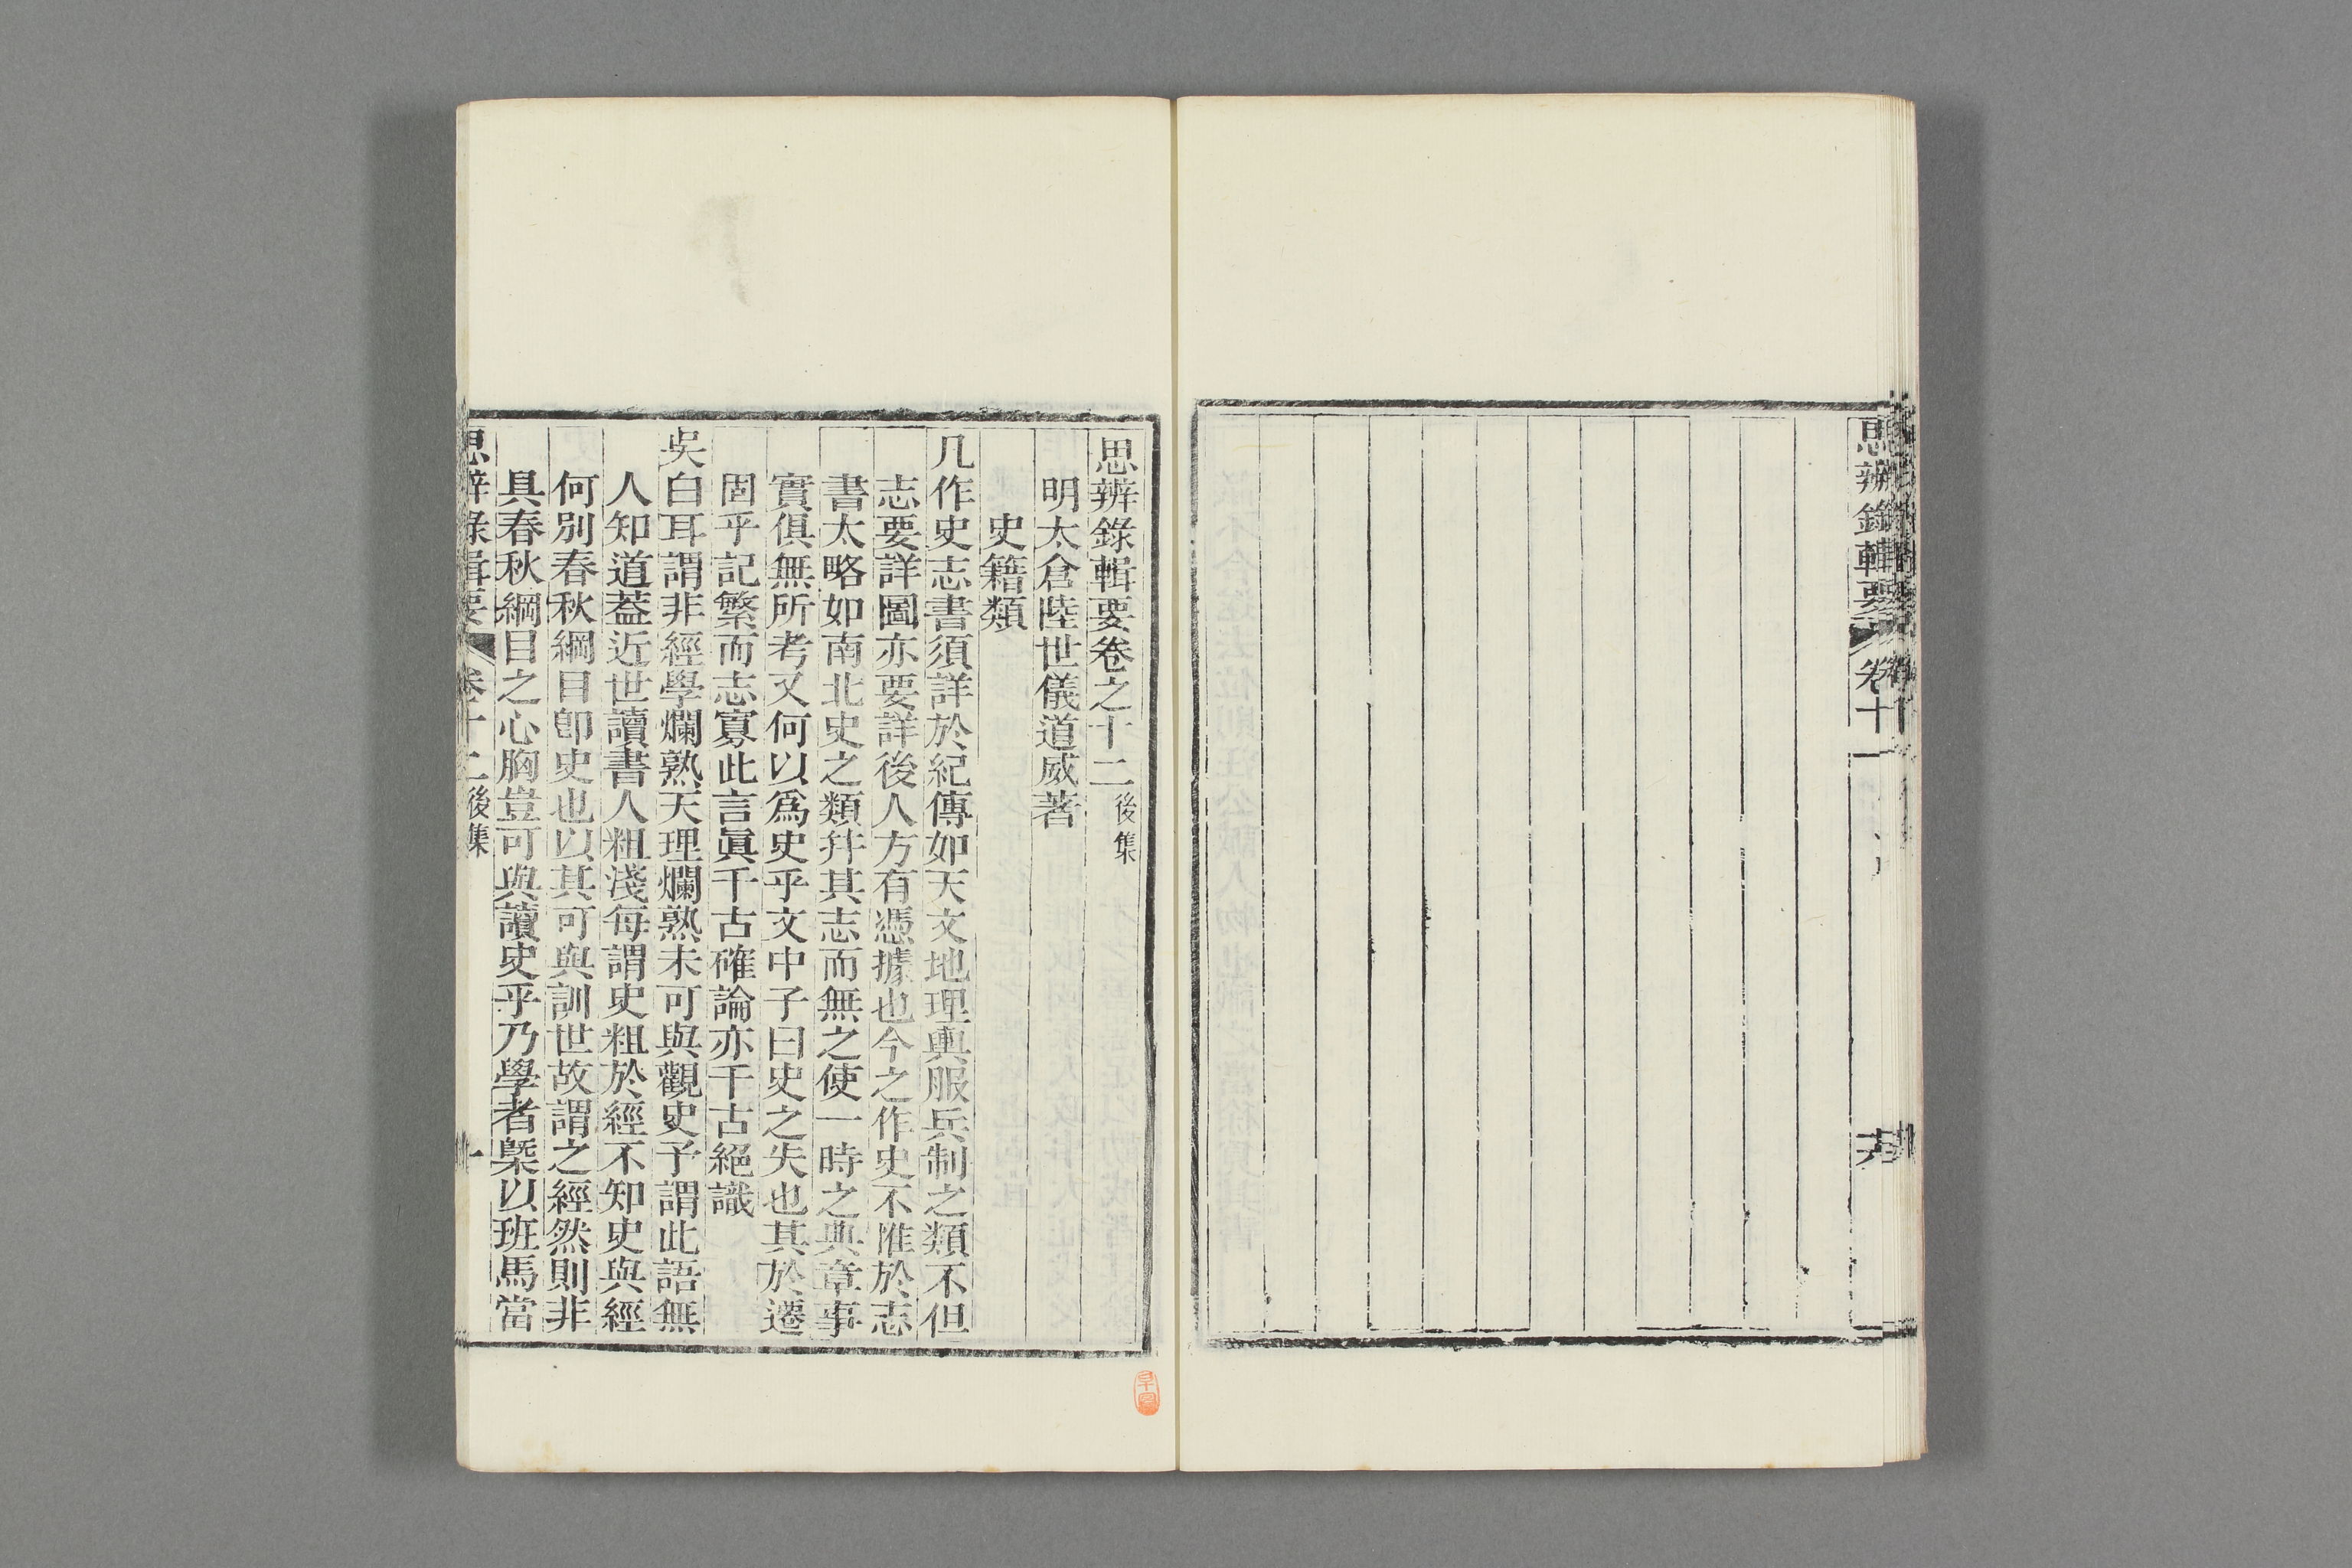 思辨錄輯要 卷十一
思辨錄輯要卷之十二 後集
明太倉陸世儀道威著
史籍類
凡作史志書須詳於紀傳如天文地理輿服兵制之類不但
志要詳圖亦要詳後人方有憑據也今之作史不惟於志
書太略如南北史之類幷其志而無之使一時之典章事
實俱無所考又何以爲史乎文中子曰史之失也其於遷
固乎記繁而志寡此言眞千古確論亦千古絕識
吳白耳謂非經學爛熟天理爛熟未可與觀史予謂此語無
人知道蓋近世讀書人粗淺每謂史粗於經不知史與經
何別春秋綱目卽史也以其可與訓世故謂之經然則非
具春秋綱目之心胸豈可與讀史乎乃學者槩以班馬當
思辨錄輯要 卷十二 後集 一